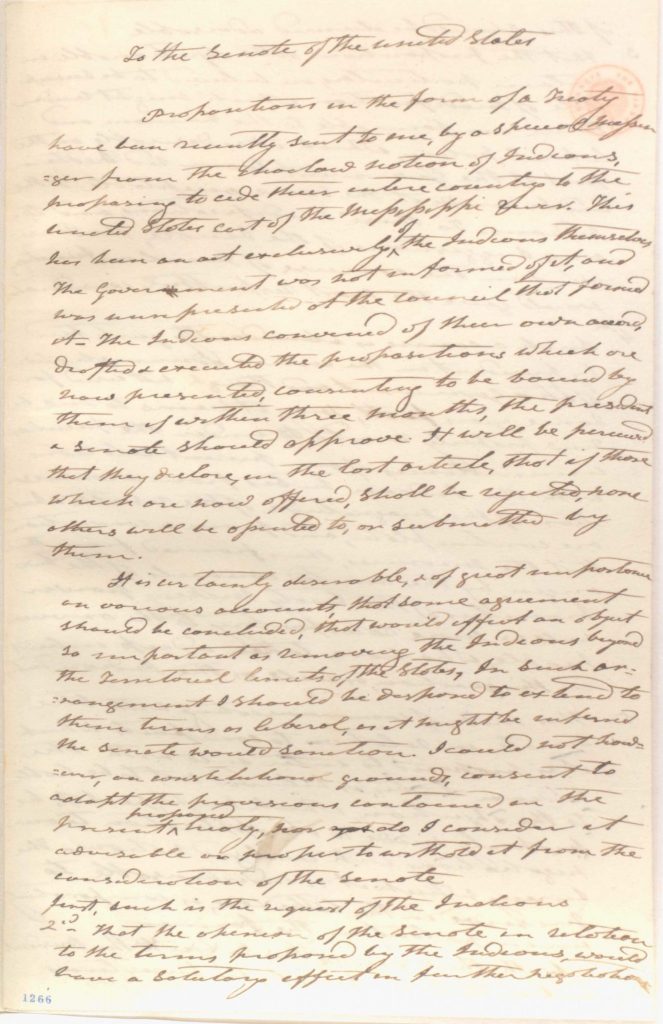 To the Senate of the United States
Propositions in the form of a Treaty
have been recently sent to me, by a special messen
=ger from the Choctaw nation of Indians,
proposing to cede their entire country to the
United States east of the Mississippi River. This
has been an act exclusively of the Indians themselves
The Government was not informed of it, and
was unrepresented at the council that formed
it - The Indians convened of their own accord,
drafted & executed the propositions which are
now presented, consenting to be bound by
them if within three months, the president
& senate should approve. It will be perceived
that they declare, in the last article, that if those
which are now offered, shall be rejected, none
others will be assented to, or submitted by
them.
It is certainly desirable, & of great importance
on various accounts, that some agreement
should be concluded, that would effect an object
so important as removing the Indians beyond
the Territorial limits of the States, In such ar-
=rangement I should be disposed to extend to
them terms as liberal, as it might be inferred
the Senate would sanction. I could not how-
=ever, on constitutional grounds, consent to
adopt the provisions contained in the
present proposed treaty, nor do I consider it
advisable or proper to withold it from the
consideration of the Senate
first, such is the request of the Indians
2nd That the opinion of the Senate in relation
to the terms proposed by the Indians, would
have a salutary effect in further negotiation
1266